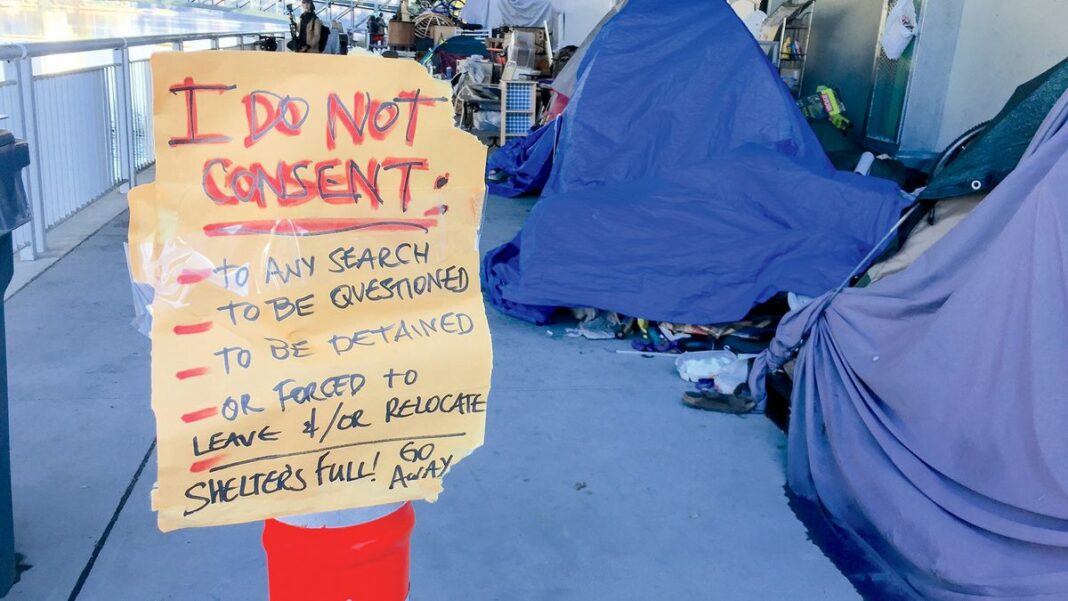 I DO NOT
CONSENT:
- TO ANY SEARCH
- TO BE QUESTIONED
- TO BE DETAINED
- OR FORCED TO
LEAVE &/OR RELOCATE
- SHELTERS FULL! GO
AWAY